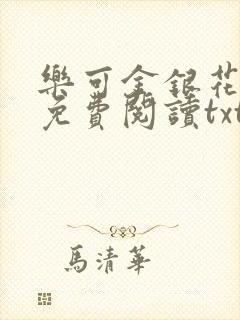 樂可金銀花
免費閱讀txt
馬清華